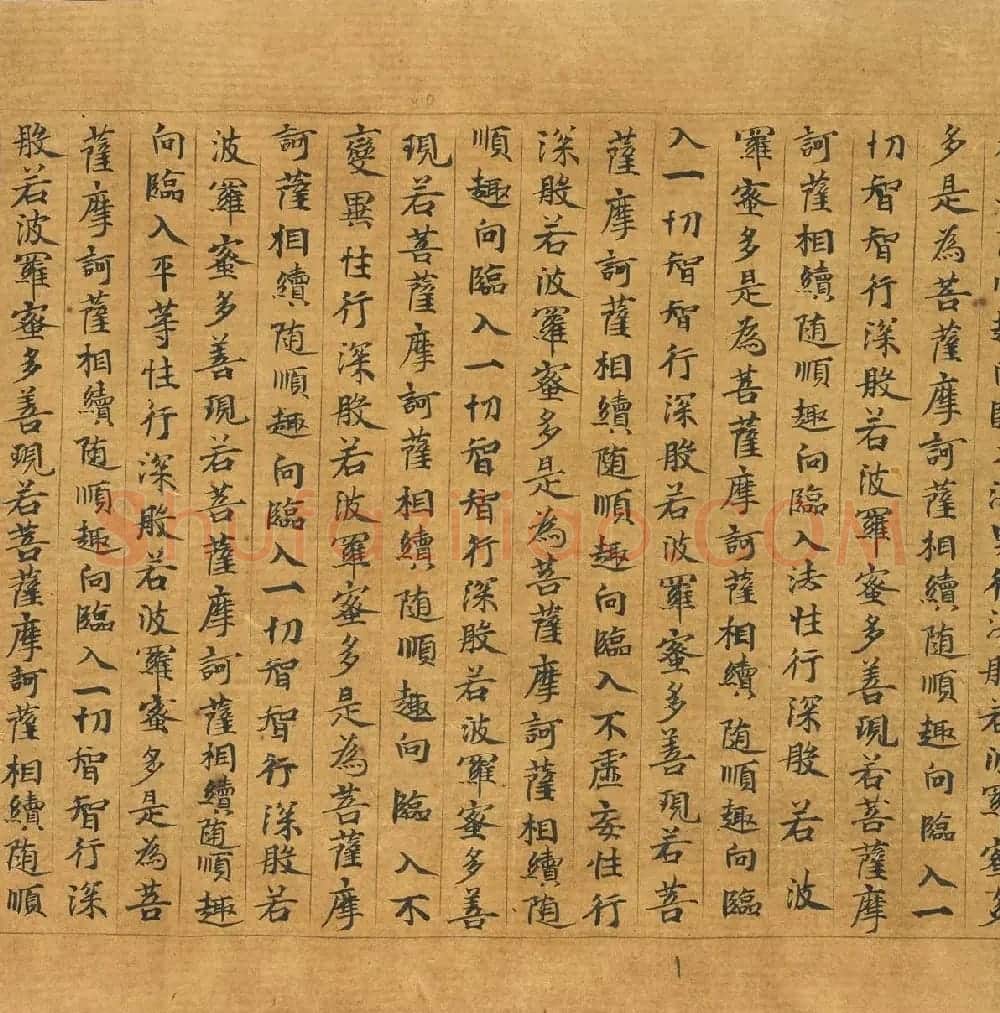 多是為菩薩摩訶薩相續随順趣向臨入一
切智智行深般若波羅蜜多善現若菩薩摩
訶薩相續随順趣向臨入法性行深般若波
羅蜜多是為菩薩摩訶薩相續随順趣向臨
入一切智智行深般若波羅蜜多善現若菩
薩摩訶薩相續随順趣向臨入不虛妄性行
深般若波羅蜜多是為菩薩摩訶薩相續随
順趣向臨入一切智智行深般若波羅蜜多善
現若菩薩摩訶薩相續随順趣向臨入不
變異性行深般若波羅蜜多是為菩薩摩
訶薩相續随順趣向臨入一切智智行深般若
波羅蜜多善現若菩薩摩訶薩相續随順趣
向臨入平等性行深般若波羅蜜多是為菩
薩摩訶薩相續随順趣向臨入一切智智行深
般若波羅蜜多善現若菩薩摩訶薩相續随順